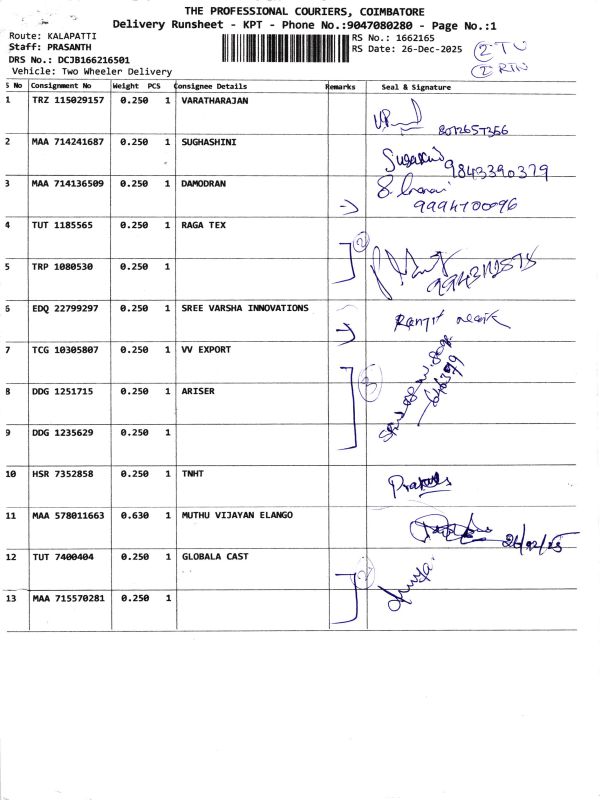 THE PROFESSIONAL COURIERS, COIMBATORE
Delivery Runsheet - KPT - Phone No.:9047080280 - Page No.:1
Route: KALAPATTI
Staff: PRASANTH
DRS No.: DCJB166216501
Vehicle: Two Wheeler Delivery
RS No.: 1662165
RS Date: 26-Dec-2025
2 TU
2 RTN
S No Consignment No Weight PCS Consignee Details Remarks Seal & Signature
1 TRZ 115029157 0.250 1 VARATHARAJAN
2 MAA 714241687 0.250 1 SUGHASHINI
9843390379
3 MAA 714136509 0.250 1 DAMODRAN
9994700096
4 TUT 1185565 0.250 1 RAGA TEX 2
5 TRP 1080530 0.250 1
6 EDQ 22799297 0.250 1 SREE VARSHA INNOVATIONS
7 TCG 10305807 0.250 1 VV EXPORT
8 DDG 1251715 0.250 1 ARISER 3
9 DDG 1235629 0.250 1
10 HSR 7352858 0.250 1 TNHT
11 MAA 578011663 0.630 1 MUTHU VIJAYAN ELANGO
12 TUT 7400404 0.250 1 GLOBALA CAST 2
13 MAA 715570281 0.250 1